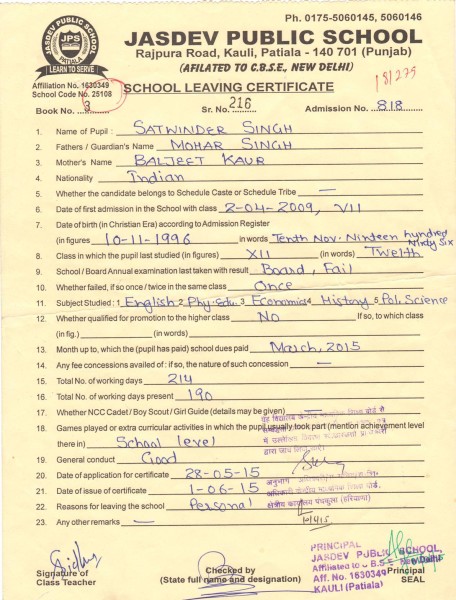 Ph. 0175-5060145, 5060146
JASDEV PUBLIC SCHOOL
PATIALA
JPS
LEARN TO SERVE
JASDEV PUBLIC SCHOOL
Rajpura Road, Kauli, Patiala - 140 701 (Punjab)
(AFILATED TO C.B.S.E., NEW DELHI)
Affiliation No. 1630349
School Code No. 25108
SCHOOL LEAVING CERTIFICATE
181275
Book No. 3 Sr. No. 216 Admission No. 818
1. Name of Pupil : SATWINDER SINGH
2. Fathers / Guardian's Name MOHAR SINGH
3. Mother's Name BALJEET KAUR
4. Nationality Indian
5. Whether the candidate belongs to Schedule Caste or Schedule Tribe —
6. Date of first admission in the School with class 2-04-2009, VII
7. Date of birth (in Christian Era) according to Admission Register
(in figures) 10-11-1996 in words Tenth Nov. Ninteen hundred
Ninty Six
8. Class in which the pupil last studied (in figures) XII (in words) Twelth
9. School / Board Annual examination last taken with result Board, Fail
10. Whether failed, if so once / twice in the same class Once
11. Subject Studied : 1 English 2 Phy. Edu. 3 Economics 4 History 5 Pol. Science
12. Whether qualified for promotion to the higher class No If so, to which class
(in fig.) (in words)
13. Month up to, which the (pupil has paid) school dues paid March, 2015
14. Any fee concessions availed of : if so, the nature of such concession —
15. Total No. of working days 214
16. Total No. of working days present 190
17. Whether NCC Cadet / Boy Scout / Girl Guide (details may be given) —
18. Games played or extra curricular activities in which the pupil usually took part (mention achievement level
there in) School level
19. General conduct Good
20. Date of application for certificate 28-05-15
21. Date of issue of certificate 1-06-15
22. Reasons for leaving the school Personal
23. Any other remarks —
क्षेत्रीय कार्यालय पंचकुला (हरियाणा)
PRINCIPAL
JASDEV PUBLIC SCHOOL,
Affiliated to C.B.S.E. New Delhi
Aff. No. 1630349
KAULI (Patiala)
Signature of
Class Teacher
Checked by
(State full name and designation)
Principal
SEAL